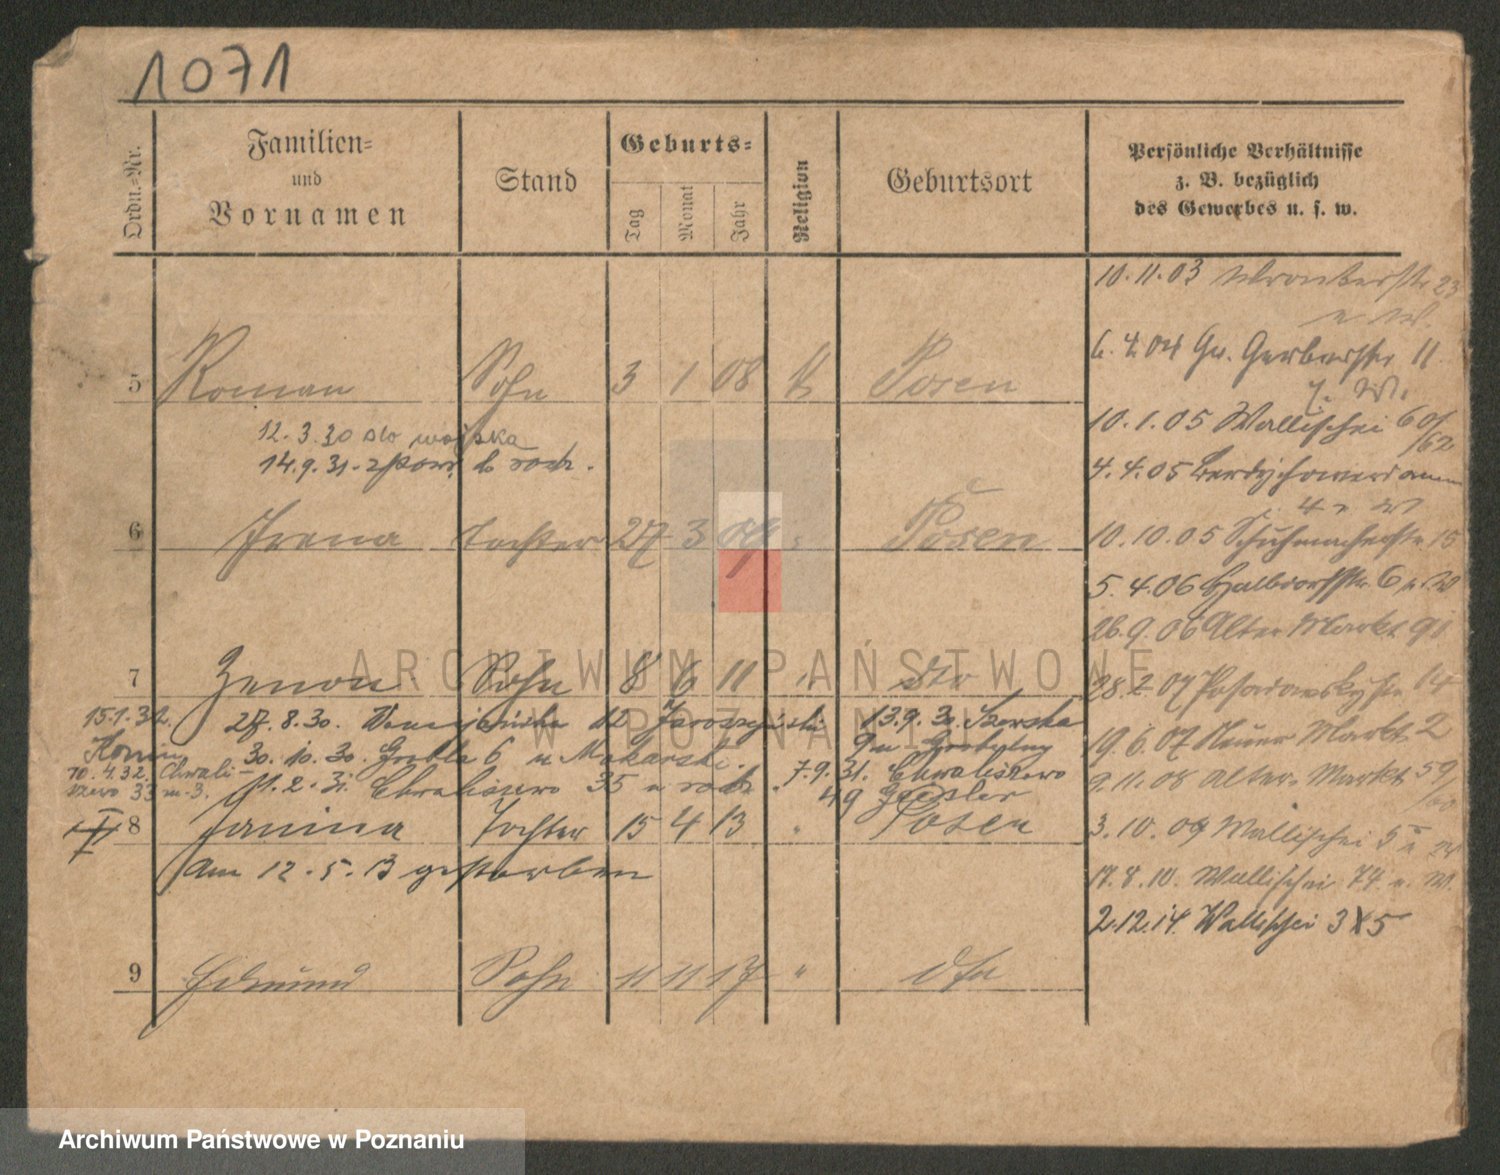 1071
Ordn.=Nr.
Familien=
und
Vornamen
Stand
Geburts=
Tag
Monat
Jahr
Religion
Geburtsort
Persönliche Verhältnisse
z. B. bezüglich
des Gewerbes u. s. w.
10.11.03 Wronkerstr 23
n. W.
5 Roman Sohn 3 1 08 K Posen
6. 4. 04 Gr. Gerberstr 11
z. W.
12.3.30 do wojska
14.9.31 - z
10.1.05 Wallischei 60/62
4.4.05
4 W
6 Irena Tochter 27 3 09 " Posen
10.10.05 Schuhmacherstr 15
5.4.06 Halbdorfstr 6 n. W
26.9.06 Alter Markt 91
7 Zenon Sohn 8 6 11 " dto
28.2.07 Posadowskystr 14
15.1.32. 27.8.30. 12 13.9.30
Konin 30.10.30. Grobla 6 u Makarski.
19.6.07 Neuer Markt 2
10.4.32. Chwali- 11.2.31. Chwaliszewo 35 u rodz. 7.9.31. Chwaliszewo
szewo 33 m. 3. 49
9.11.08 Alter Markt 59/60
8 Janina Tochter 15 4 13 " Posen
3.10.09 Wallischei 5 n W
Am 12.5.13 gestorben
17.8.10. Wallischei 74 n. W.
2.12.14. Wallischei 3 X 5
9 Edmund Sohn 11 11 17 " dto
ARCHIWUM PAŃSTWOWE
W POZNANIU
Archiwum Państwowe w Poznaniu